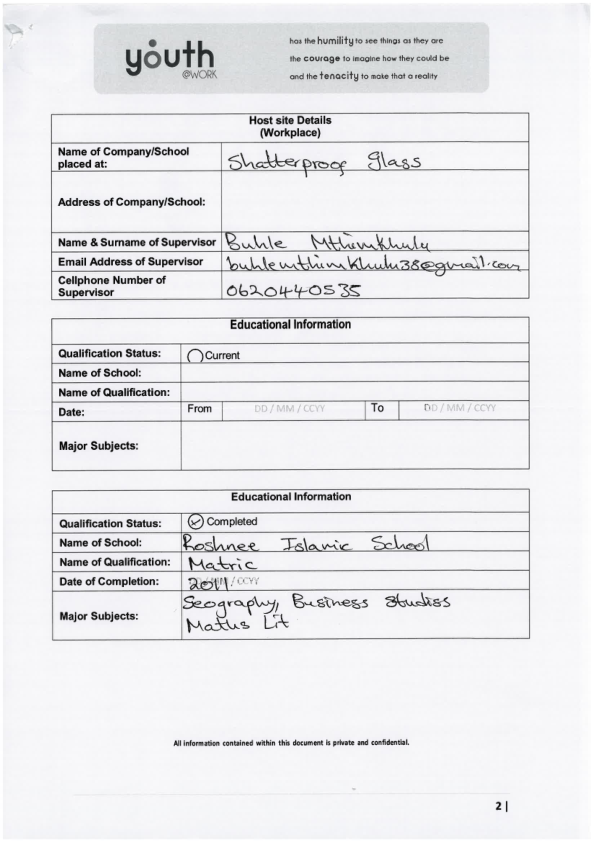 youth
@WORK
has the humility to see things as they are
the courage to imagine how they could be
and the tenacity to make that a reality
Host site Details
(Workplace)
Name of Company/School placed at: Shatterproof Glass
Address of Company/School:
Name & Surname of Supervisor Buhle Mthimkhulu
Email Address of Supervisor buhlemthimkhulu38@gmail.com
Cellphone Number of Supervisor 0620440535
Educational Information
Qualification Status: Current
Name of School:
Name of Qualification:
Date: From DD / MM / CCYY To DD / MM / CCYY
Major Subjects:
Educational Information
Qualification Status: Completed
Name of School: Roshnee Islamic School
Name of Qualification: Matric
Date of Completion: 2011. / CCYY
Major Subjects: Geography, Business Studiss
Maths Lit
All information contained within this document is private and confidential.
2 |